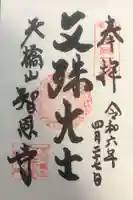 奉拝
令和六年
四月二十七日
文殊大士
天橋山
智恩寺